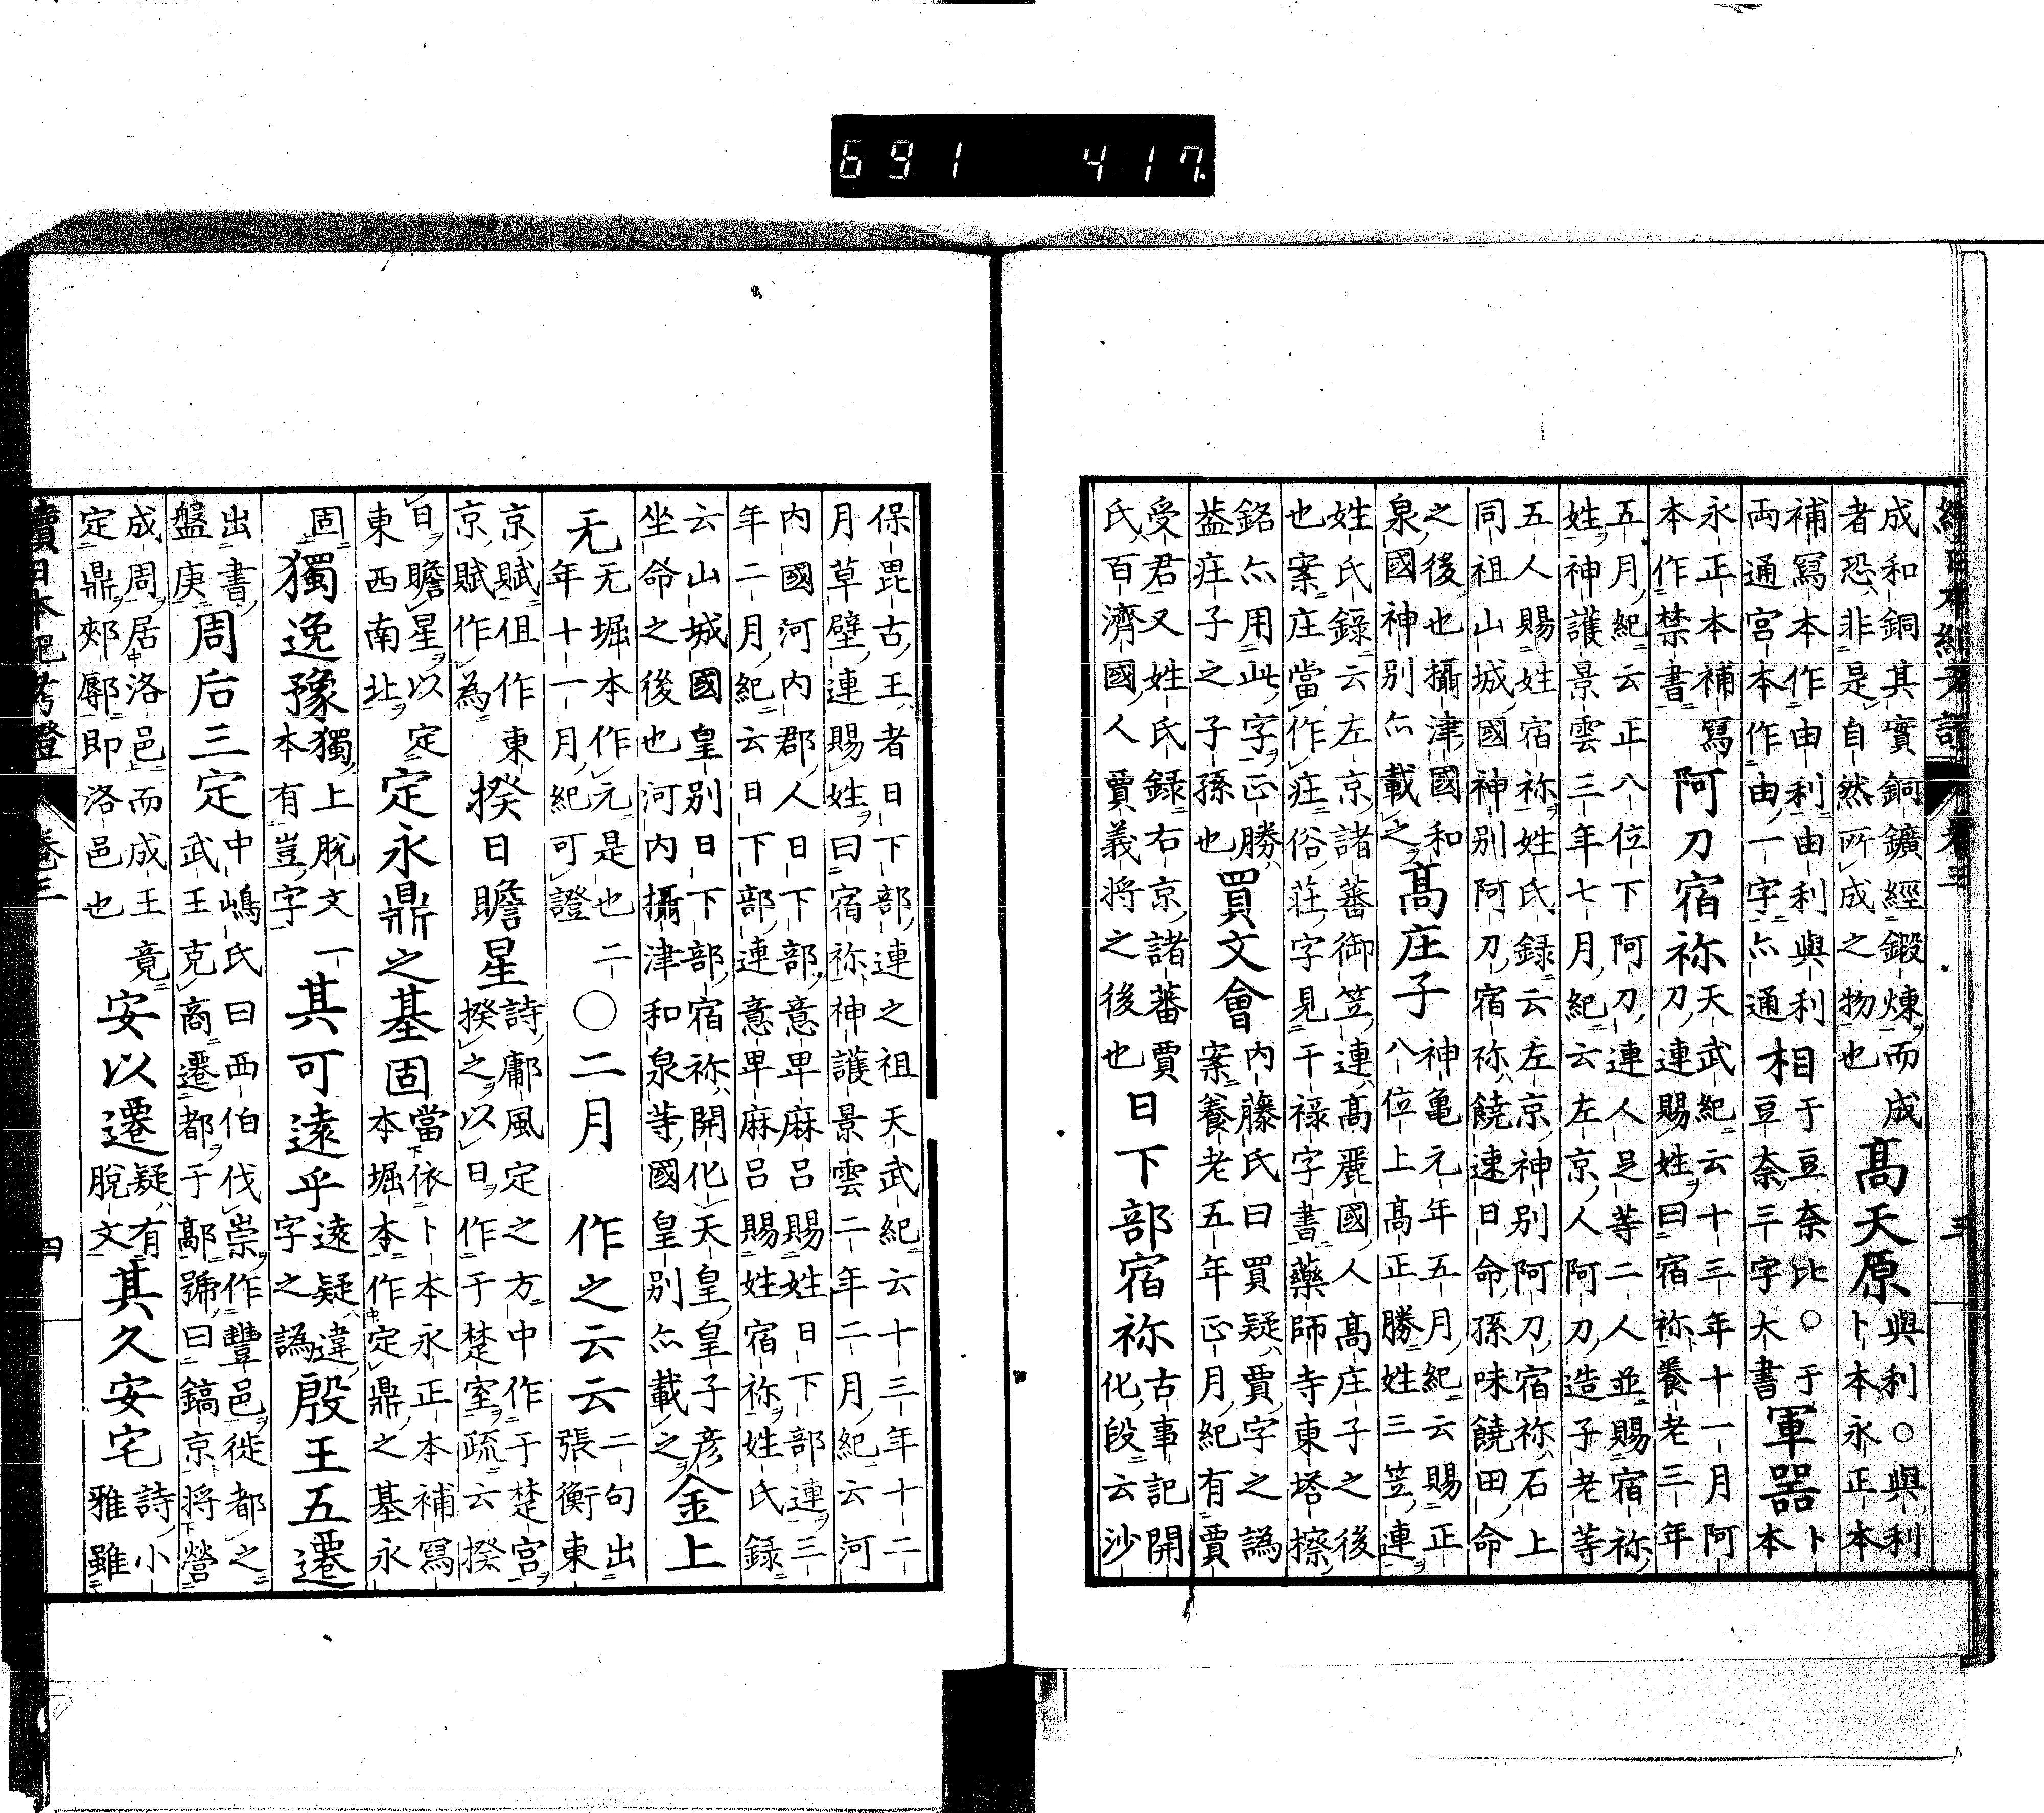 續日本紀考證 卷三 三
成和銅其實銅鑛經鍛煉而成
者恐非是自然所成之物也
高天原
與利○與利
卜本永正本
補寫本作由利由利與利
両通宮本作由一字亦通
相
于豆奈比○于
豆奈三字大書
軍器
卜
本
永正本補寫
本作禁書
阿刀宿祢
天武紀云十三年十一月阿
刀連賜姓曰宿祢養老三年
五月紀云正八位下阿刀連人足等二人並賜宿祢
姓神護景雲三年七月紀云左京人阿刀造子老等
五人賜姓宿祢姓氏録云左京神別阿刀宿祢石上
同祖山城國神別阿刀宿祢饒速日命孫味饒田命
之後也攝津國和
泉國神別亦載之
高庄子
神亀元年五月紀云賜正
八位上高正勝姓三笠連
姓氏録云左京諸蕃御笠連高麗國人高庄子之後
也案庄當作疰俗莊字見干禄字書藥師寺東塔擦
銘亦用此字正勝
蓋疰子之子孫也
買文會
内藤氏曰買疑賈字之譌
案養老五年正月紀有賈
受君又姓氏録右京諸蕃賈
氏百濟國人賈義将之後也
日下部宿祢
古事記開
化段云沙
保毘古王者日下部連之祖天武紀云十三年十二
月草壁連賜姓曰宿祢神護景雲二年二月紀云河
内國河内郡人日下部意卑麻呂賜姓日下部連三
年二月紀云日下部連意卑麻呂賜姓宿祢姓氏録
云山城國皇別日下部宿祢開化天皇皇子彦
坐命之後也河内攝津和泉等國皇別亦載之
金上
无
无堀本作元是也二
年十一月紀可證
○二月
作之云云
二句出
張衡東
京賦但作東
京賦作為
揆日瞻星
詩鄘風定之方中作于楚宮
揆之以日作于楚室疏云揆
日瞻星以定
東西南北
定永鼎之基固
當依卜本永正本補寫
本堀本作定鼎之基永
固
獨逸豫
獨上脱文一
本有豈字
其可遠乎
遠疑違
字之譌
殷王五遷
出書
盤庚
周后三定
中嶋氏曰西伯伐崇作豐邑徙都之
武王克商遷都于鄗號曰鎬京将營
成周居洛邑而成王竟
定鼎郟鄏即洛邑也
安以遷
疑有
脱文
其久安宅
詩小
雅雖
續日本紀考證 卷三 四